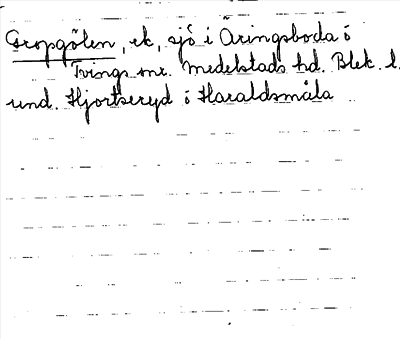 Gropgölen, ek, sjö i Äringsboda ö
Tvings snr. Medelstads hd. Blek. l.
und. Hjortseryd ö Haraldsmåla